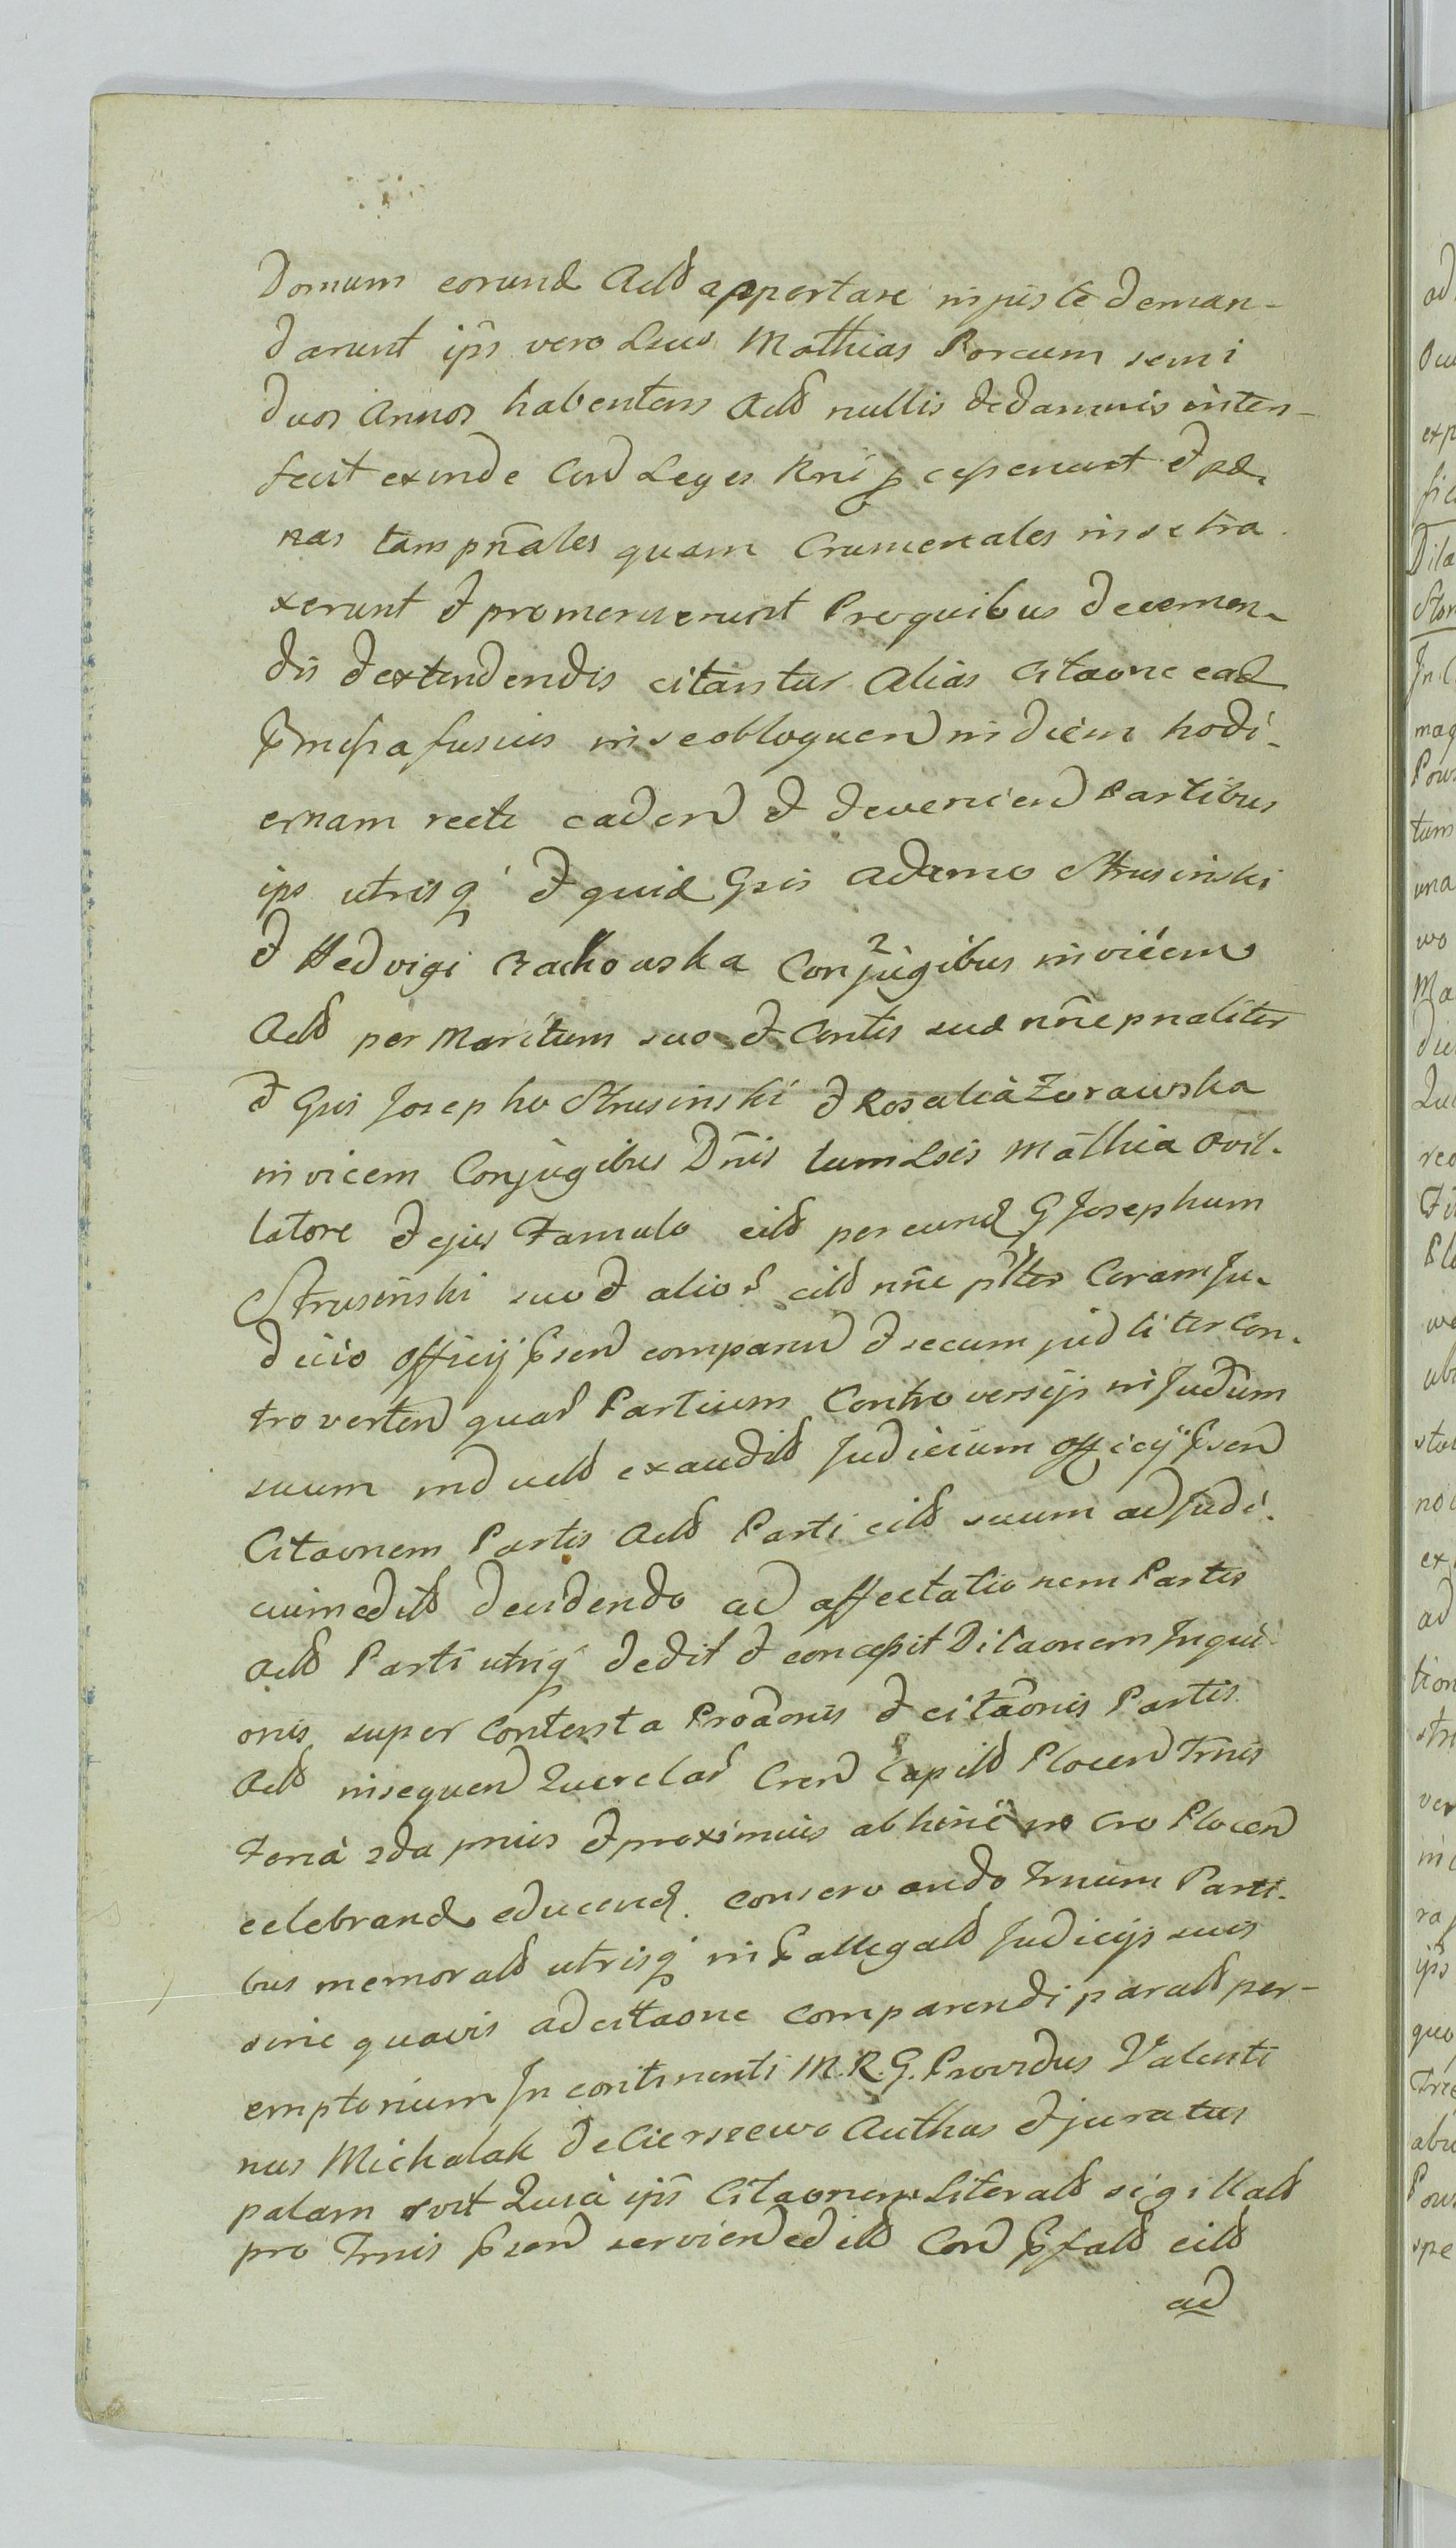 Domum eorund Actt apportare injuste deman-
darunt ips vero Lsus Mathias Porcum semi
duos Annos habentem Actt nullis de damnis inter-
fecit exinde Cord Leges Rni p cesserunt & pœ-
nas tam pnales quam Crumenales in se tra
xerunt & promeruerunt Pro quibus decernen-
dis & extendendis citantur Alias Citaone ead
prmissa fusius in se obloquen in diem hodi-
ernam recte caden & devenien Partibus
ips utrisq & quid Gsis Adamo Strusinski
& Hedvigi Czachowska Conjugibus invicem
Actt per Maritum suo & Contis suæ nne pnaliter
& Gsis Josepho Strusinski & Rosalia Zorawska
invicem Conjugibus Dnis tum Lsis Mathia Ovil-
latore & ejus Famulo citt per eund G Josephum
Strusinski suo & alior citt nne plter Coram Ju-
dicio Officij Prsen comparen & secum judliter Con-
troverten quar Partium Controversijs in Judum
suum induct exaudit Judicium Officij Prsen
Citaonem Partis Actt Parti citt suum adjudi-
cium edit decidendo ad affectationem Partis
Actt Parti utriq dedit & concessit Dilaonem Inqui
onis super Contenta Proaonis & citaonis Partis
Actt insequen Querelar Cren Capitt Plocen Trnis
Feria 2da prius & proximius abhinc in Cro Plocen
celebrand educend. conservando Trnum Parti-
bus memorat utrisq in Prallegat Judicijs suis
sine quavis adcitaone comparendi parat per-
emptorium In continenti M. R. G. Providus Valenti
nus Michalak de Cierszewo Authus & juratus
palam Quia ips Citaonem Literat sigillat
pro Trnis Prsen servien edit Cord Prfat citt
ad